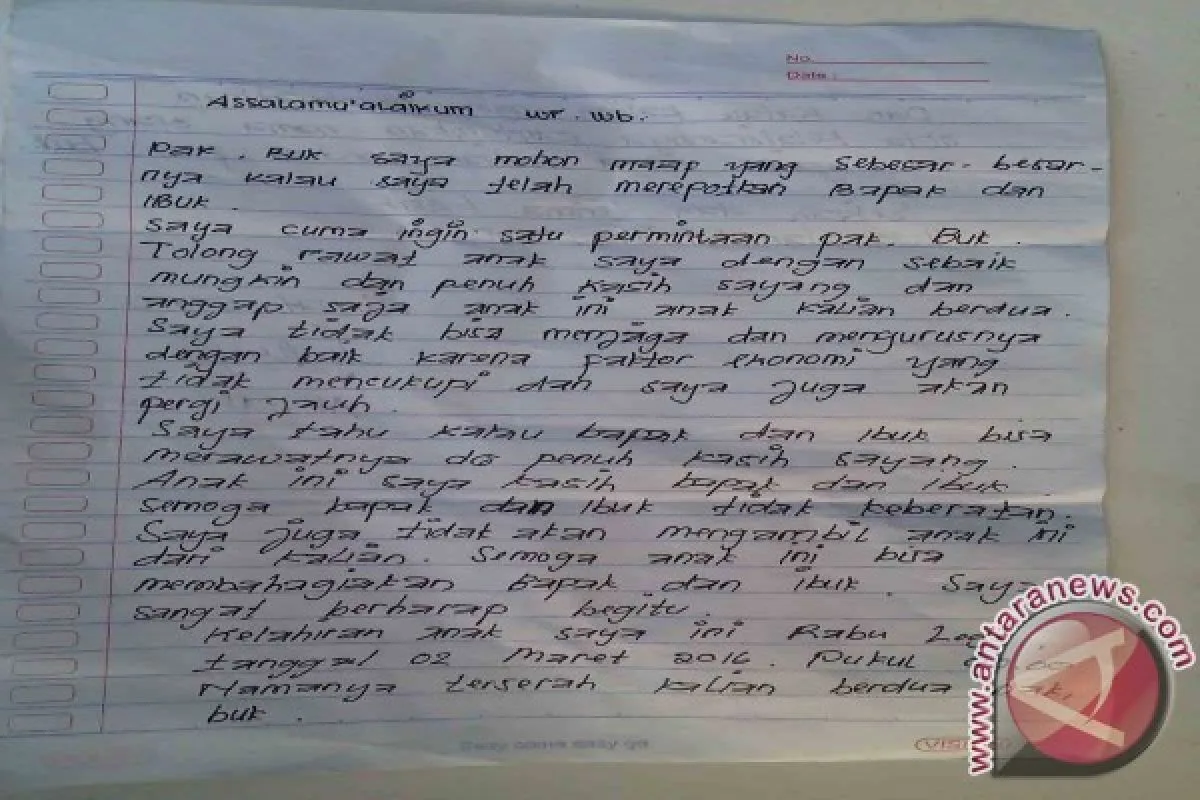 No.
Date :
Assalamu'alaikum wr. wb.
Pak. Buk saya mohon maap yang sebesar-besar-
nya kalau saya telah merepotkan Bapak dan
IBUK.
Saya cuma ingin satu permintaan pak. Buk.
Tolong rawat anak saya dengan sebaik
mungkin dan penuh kasih sayang dan
anggap saja anak ini anak kalian berdua.
Saya tidak bisa menjaga dan mengurusnya
dengan baik karena faktor ekonomi yang
tidak mencukupi dan saya juga akan
pergi jauh.
Saya tahu kalau bapak dan ibuk bisa
merawatnya dg penuh kasih sayang.
Anak ini saya kasih bapak dan ibuk.
semoga bapak dan ibuk tidak keberatan.
Saya juga tidak akan mengambil anak ini
dari kalian. Semoga anak ini bisa
membahagiakan bapak dan ibuk. Saya
sangat berharap begitu.
Kelahiran anak saya ini Rabu
tanggal 02 Maret 2016. Pukul
Namanya terserah kalian berdua
buk.
www.antaranews.com